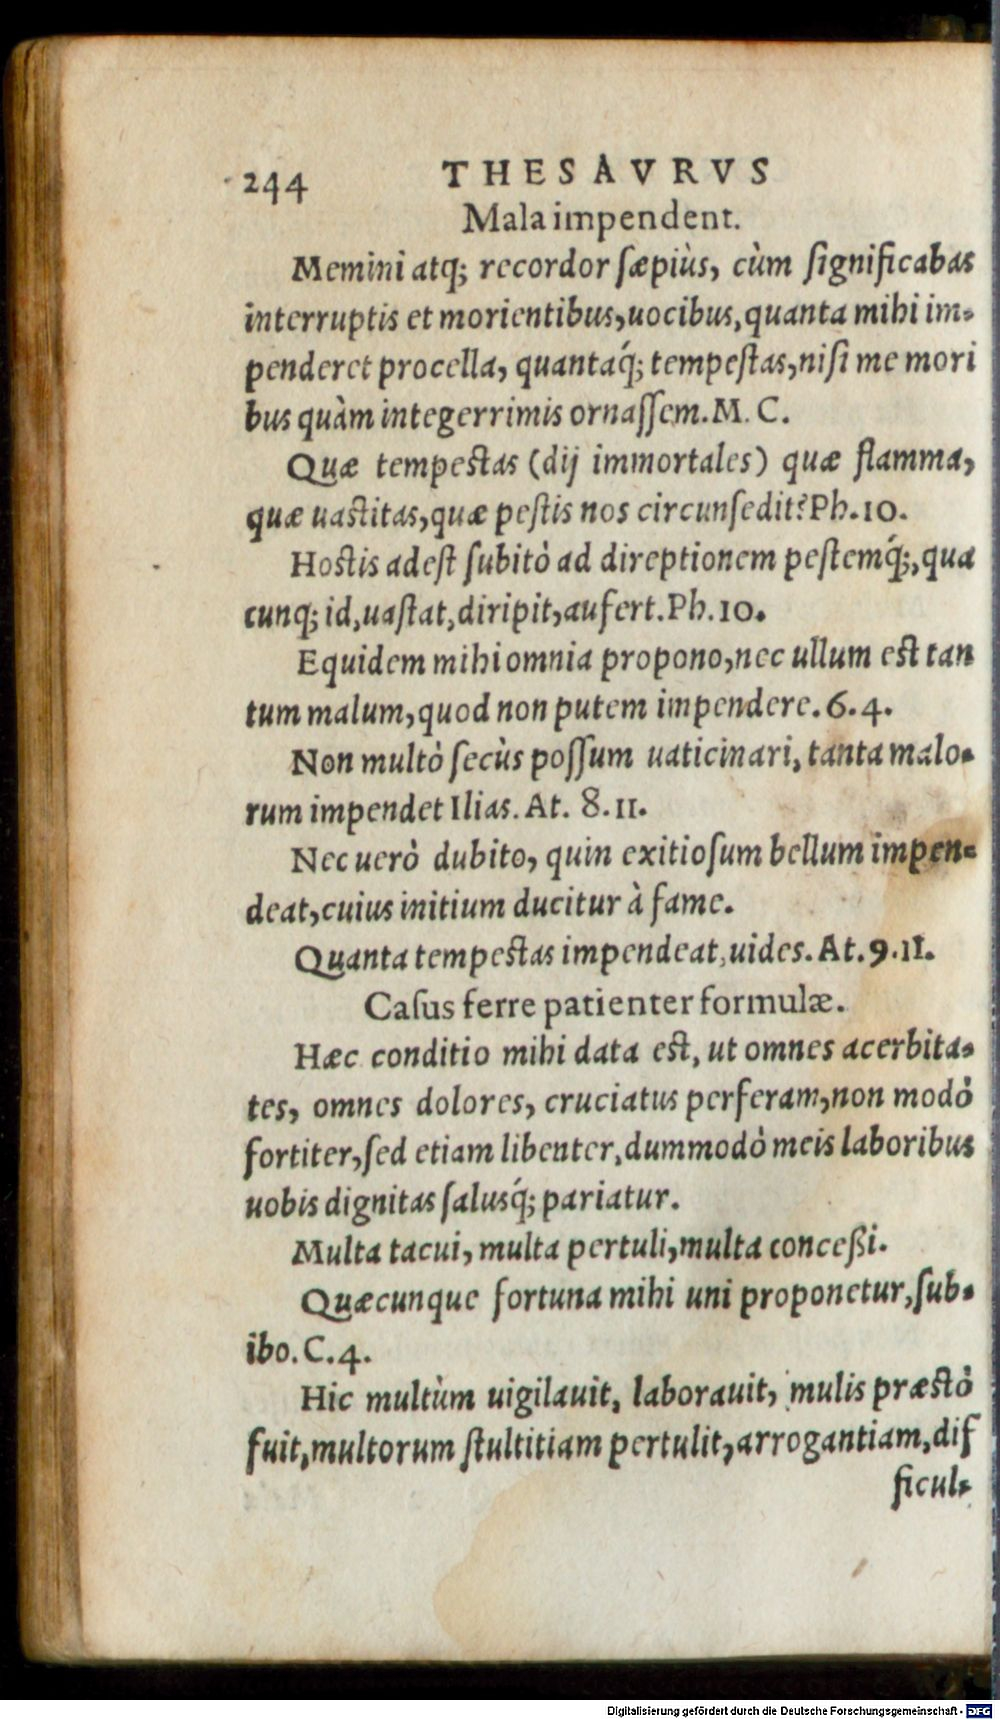 244 THESAVRVS
Mala impendent.
Memini atq; recordor sæpiùs, cùm significabas
interruptis et morientibus, uocibus, quanta mihi im-
penderet procella, quantaq́; tempestas, nisi me mori
bus quàm integerrimis ornassem. M. C.
Quæ tempestas (dij immortales) quæ flamma,
quæ uastitas, quæ pestis nos circunsedit? Ph. 10.
Hostis adest subitò ad direptionem pestemq́;, qua
cunq; id, uastat, diripit, aufert. Ph. 10.
Equidem mihi omnia propono, nec ullum est tan
tum malum, quod non putem impendere. 6. 4.
Non multò secùs possum uaticinari, tanta malo-
rum impendet Ilias. At. 8. 11.
Nec uerò dubito, quin exitiosum bellum impen-
deat, cuius initium ducitur à fame.
Quanta tempestas impendeat, uides. At. 9. 11.
Casus ferre patienter formulæ.
Hæc conditio mihi data est, ut omnes acerbita-
tes, omnes dolores, cruciatus perferam, non modò
fortiter, sed etiam libenter, dummodò meis laboribus
uobis dignitas salusq́; pariatur.
Multa tacui, multa pertuli, multa conceßi.
Quæcunque fortuna mihi uni proponetur, sub-
ibo. C. 4.
Hic multùm uigilauit, laborauit, mulis præstò
fuit, multorum stultitiam pertulit, arrogantiam, dif
ficul-
Digitalisierung gefördert durch die Deutsche Forschungsgemeinschaft - DFG